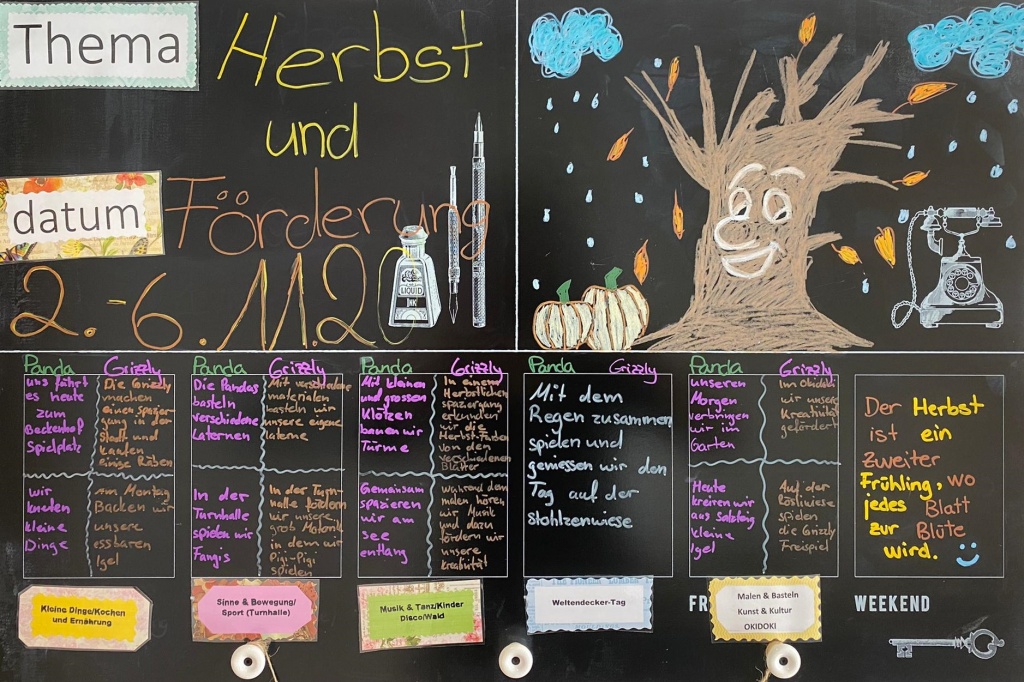 Thema
Herbst
und
datum
Förderung
2.-6.11.20
LIQUID
INK
Panda Grizzly
uns führt
es heute
zum
Beckenhof
Spielplatz
Die Grizzly
machen
einen spazier-
gang in der
Stadt und
kaufen
einige Räben
wir
kneten
kleine
Dinge
am Montag
Backen wir
unsere
essbaren
Igel
Kleine Dinge/Kochen
und Ernährung
Panda Grizzly
Die Pandas
basteln
verschiedene
Laternen
Mit verschiedene
materialen
basteln wir
unsere eigene
laterne
In der
Turnhalle
spielen wir
Fangis
In der Turn-
halle fördern
wir unsere
grob Motorik
in dem wir
Pipi-Pipi
spielen
Sinne & Bewegung/
Sport (Turnhalle)
Panda Grizzly
Mit kleinen
und grossen
Klötzen
bauen wir
Türme
In einem
Herbstlichen
spaziergang
erkunden
wir die
Herbst-Farben
von den
verschiedenen
Blätter
Gemeinsam
spazieren
wir am
see
entlang
während dem
malen hören
wir Musik
und dazu
fördern wir
unsere
kreativität
Musik & Tanz/Kinder
Disco/Wald
Panda Grizzly
Mit dem
Regen zusammen
spielen und
geniessen wir den
Tag auf der
Stohlzenwiese
Weltendecker-Tag
Panda Grizzly
unseren
Morgen
verbringen
wir im
Garten
Im Okidoki
wir unsere
Kreativität
gefördert
Heute
kreiren wir
aus Salzteig
kleine
Igel
Auf der
Rösliwiese
spielen
die Grizzly
Freispiel
FR
Malen & Basteln
Kunst & Kultur
OKIDOKI
Der Herbst
ist ein
Zweiter
Frühling, wo
jedes Blatt
zur Blüte
wird.
WEEKEND